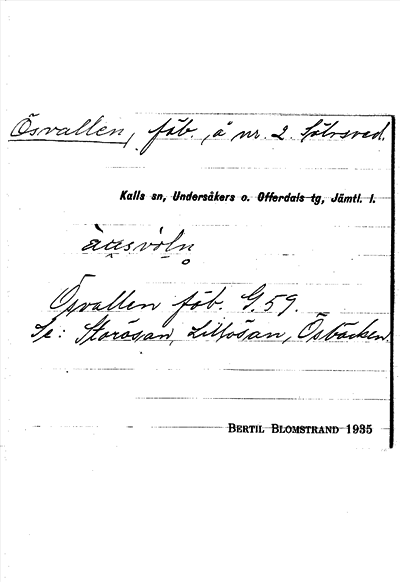 Ösvallen, fäb. å nr. 2. Sölvsved.
Kalls sn, Undersåkers o. Offerdals tg, Jämtl. l.
Ösvallen fäb. G.59.
Se: Storösan, Lillösan, Ösbäcken.
BERTIL BLOMSTRAND 1935